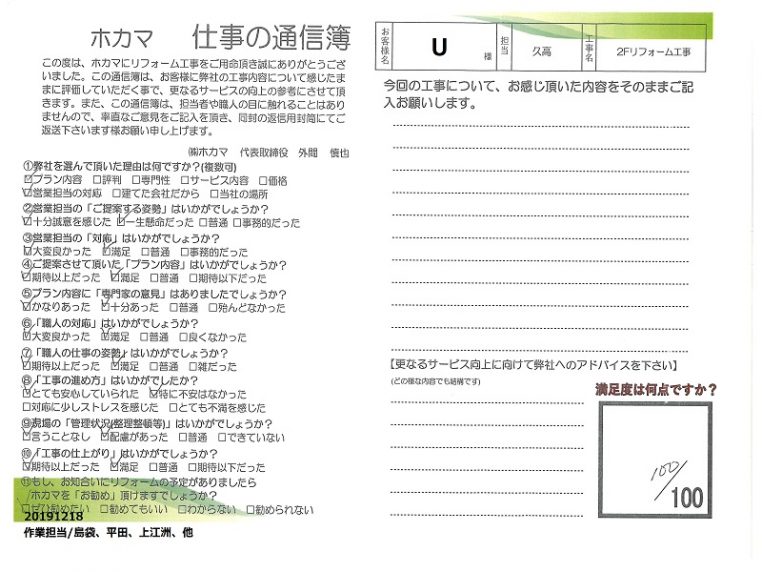 ホカマ 仕事の通信簿
この度は、ホカマにリフォーム工事をご用命頂き誠にありがとうござ
いました。この通信簿は、お客様に弊社の工事内容について感じたま
まに評価していただく事で、更なるサービスの向上の参考にさせて頂
きます。また、この通信簿は、担当者や職人の目に触れることはあり
ませんので、率直なご意見をご記入を頂き、同封の返信用封筒にてご
返送下さいます様お願い申し上げます。
㈱ホカマ 代表取締役 外間 慎也
①弊社を選んで頂いた理由は何ですか？(複数可)
☑プラン内容 □評判 □専門性 □サービス内容 □価格
☑営業担当の対応 □建てた会社だから □当社の場所
②営業担当の「ご提案する姿勢」はいかがでしょうか？
☑十分誠意を感じた ☑一生懸命だった □普通 □事務的だった
③営業担当の「対応」はいかがでしょうか？
☑大変良かった ☑満足 □普通 □事務的だった
④ご提案させて頂いた「プラン内容」はいかがでしょうか？
☑期待以上だった ☑満足 □普通 □期待以下だった
⑤プラン内容に「専門家の意見」はありましたでしょうか？
☑かなりあった ☑十分あった □普通 □殆んどなかった
⑥「職人の対応」はいかがでしょうか？
☑大変良かった ☑満足 □普通 □良くなかった
⑦「職人の仕事の姿勢」はいかがでしょうか？
☑期待以上だった ☑満足 □普通 □雑だった
⑧「工事の進め方」はいかがでしたか？
☑とても安心していられた ☑特に不安はなかった
□対応に少しストレスを感じた □とても不満を感じた
⑨現場の「管理状況(整理整頓等)」はいかがでしょうか？
☑言うことなし ☑配慮があった □普通 □できていない
⑩「工事の仕上がり」はいかがでしょうか？
☑期待以上だった ☑満足 □普通 □期待以下だった
⑪もし、お知合いにリフォームの予定がありましたら
ホカマを「お勧め」頂けますでしょうか？
☑ぜひ勧めたい □勧めてもいい □わからない □勧められない
20191218
作業担当/島袋、平田、上江洲、他
お客様名 U 様 担当 久高 工事名 2Fリフォーム工事
今回の工事について、お感じ頂いた内容をそのままご記
入お願いします。
【更なるサービス向上に向けて弊社へのアドバイスを下さい】
(どの様な内容でも結構です)
満足度は何点ですか？
100/
100